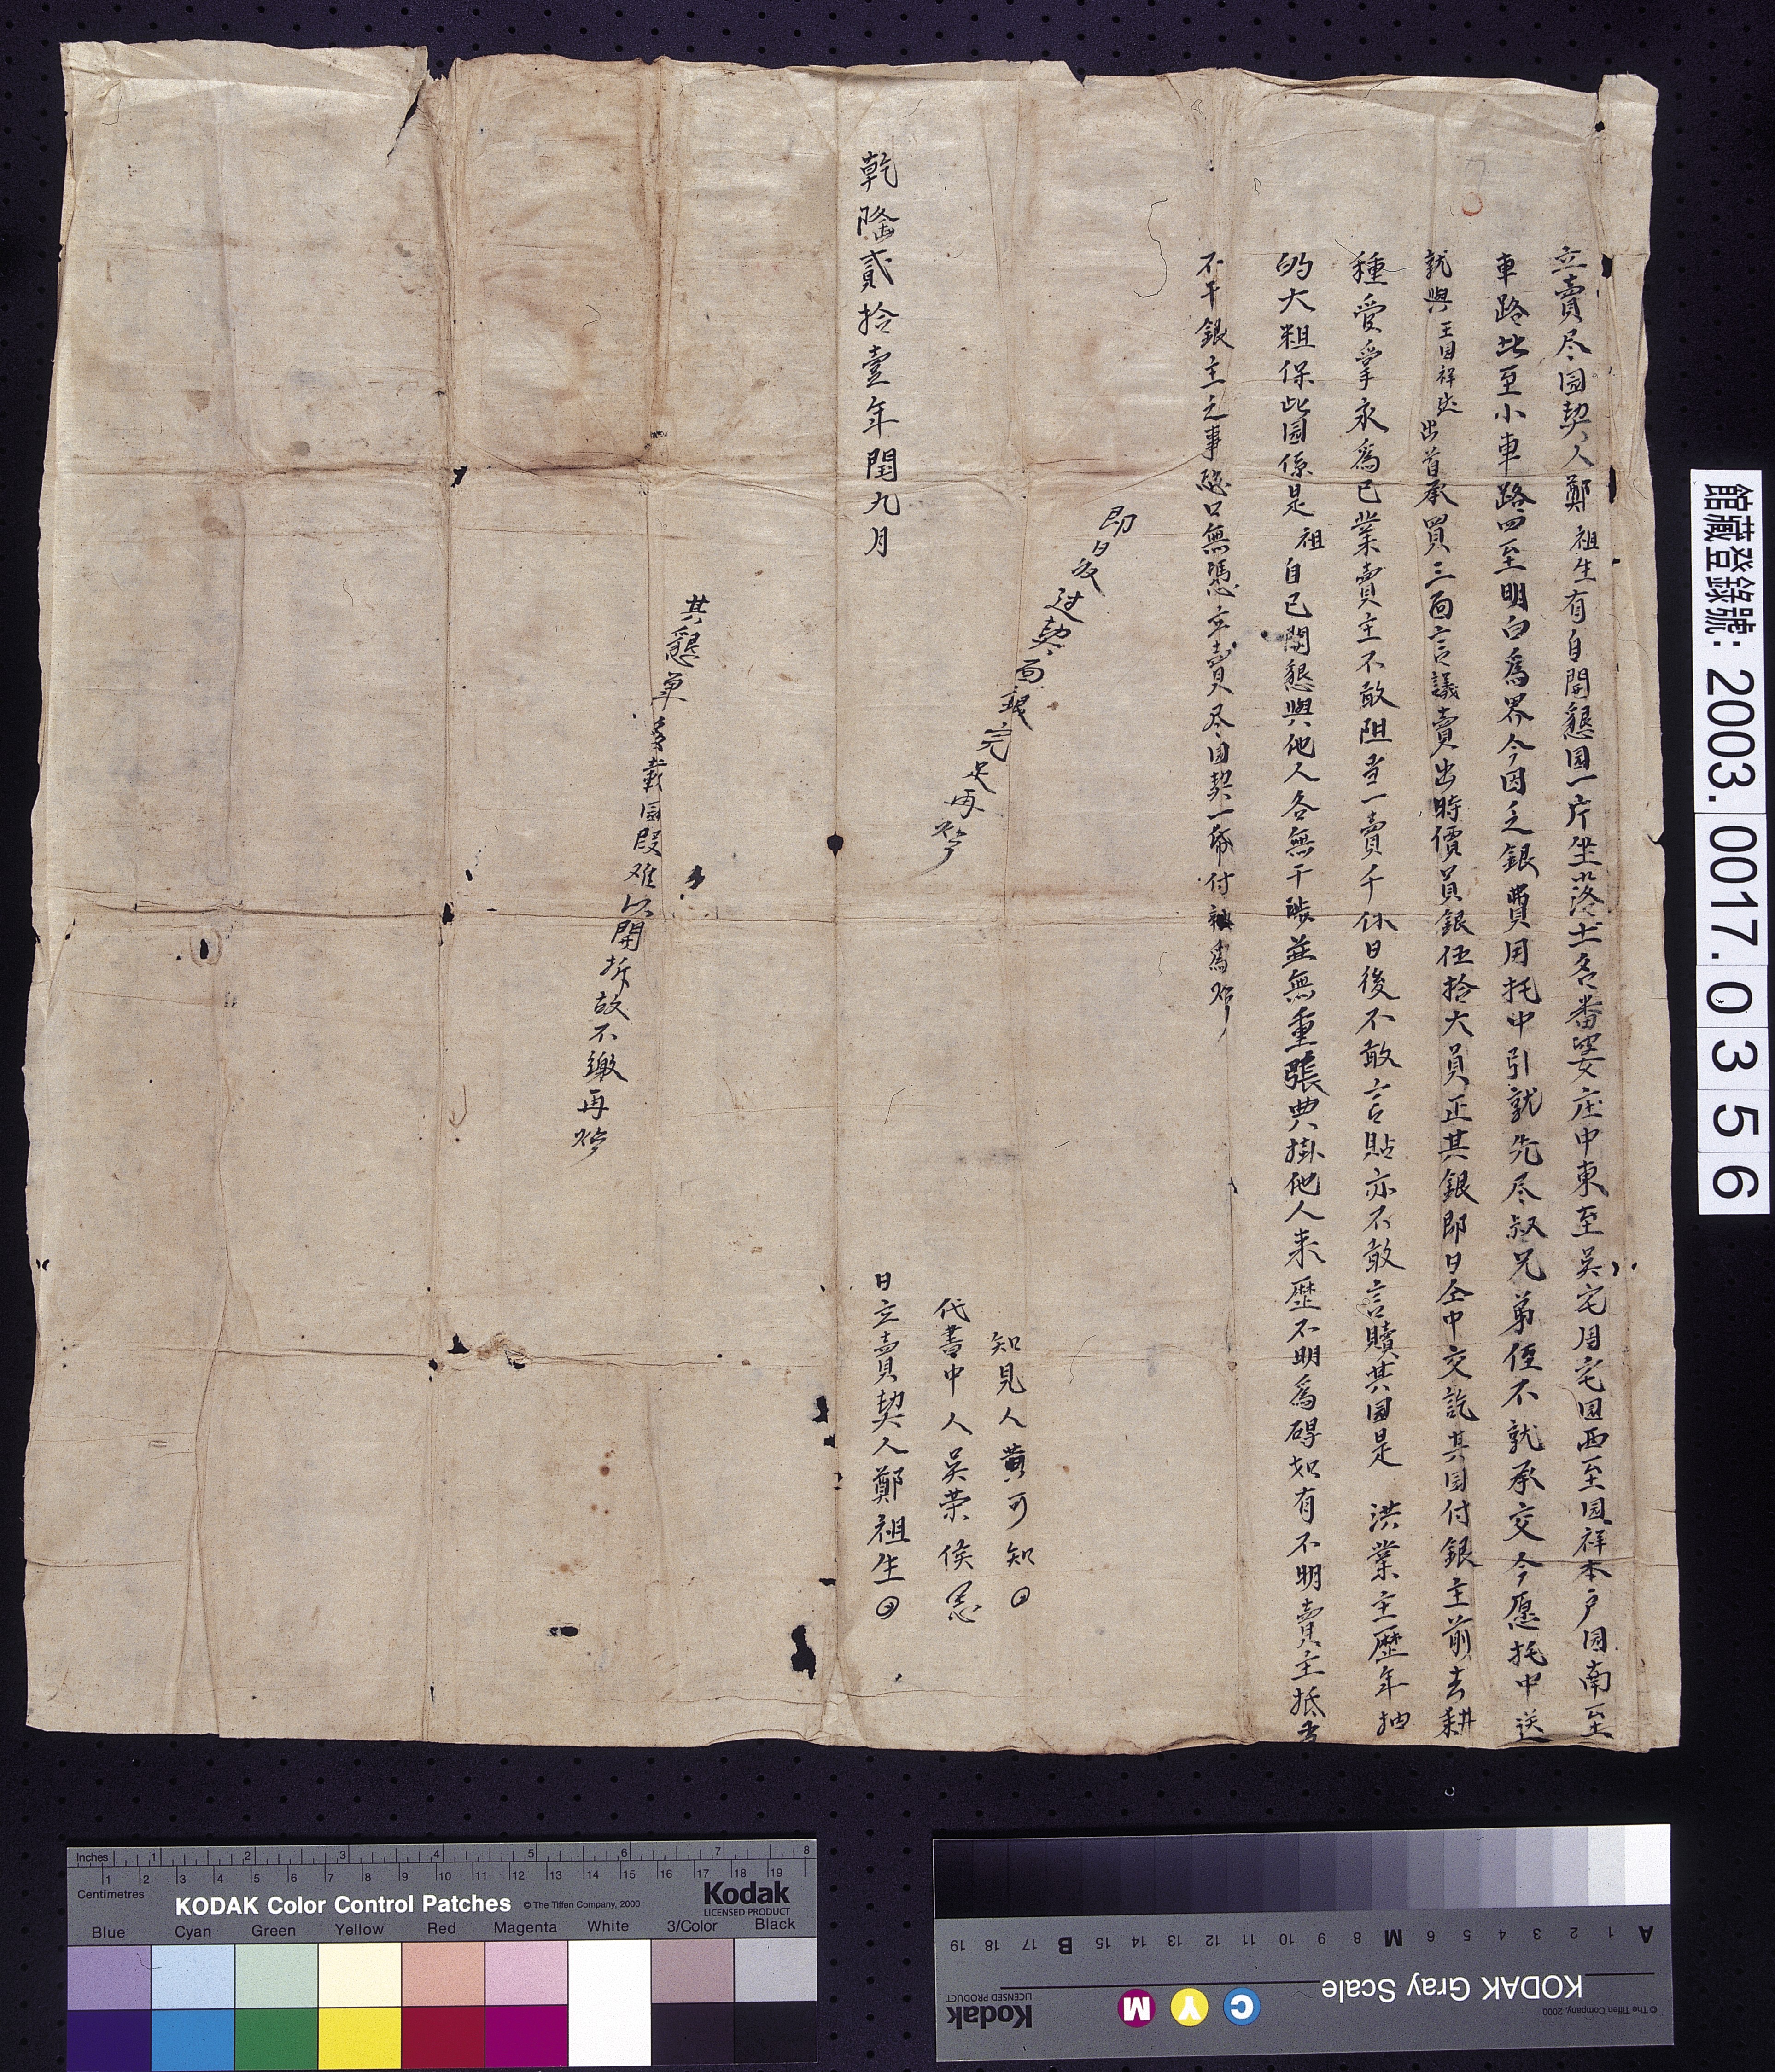 立賣尽园契人鄭祖生有自開懇园一片坐落土名番婆庄中東至吳宅周宅园西至园祥本户园南至
車路北至小車路四至明白為界今因乏銀費用托中引就先尽叔兄弟侄不就承交今愿托中送
就與王园祥出首承買三面言議賣出時價員銀伍拾大員正其銀即日仝中交訖其园付銀主前去耕
種受掌永為己業賣主不敢阻当一賣千休日後不敢言貼亦不敢言贖其园是 洪業主歷年抽
的大租保此园係是祖自己開懇與他人各無干涉並無重張典掛他人来歷不明為碍如有不明賣主抵当
不干銀主之事恐口無憑立賣尽园契一帋付執為炤
即日收过契面銀完足再炤
乾隆貳拾壹年閏九月
知見人黄可知
代書中人吳荣侯
日立賣契人鄭祖生
其懇單載园段难以開拆故不繳再炤
館藏登錄號: 2003.0017.0356
Inches 1 2 3 4 5 6 7 8
Centimetres 1 2 3 4 5 6 7 8 9 10 11 12 13 14 15 16 17 18 19
KODAK Color Control Patches © The Tiffen Company, 2000 Kodak
LICENSED PRODUCT
Blue Cyan Green Yellow Red Magenta White 3/Color Black
A 1 2 3 4 5 6 M 8 9 10 11 12 13 14 15 B 17 18 19
KODAK Gray Scale
C Y M
Kodak
LICENSED PRODUCT
© The Tiffen Company, 2000